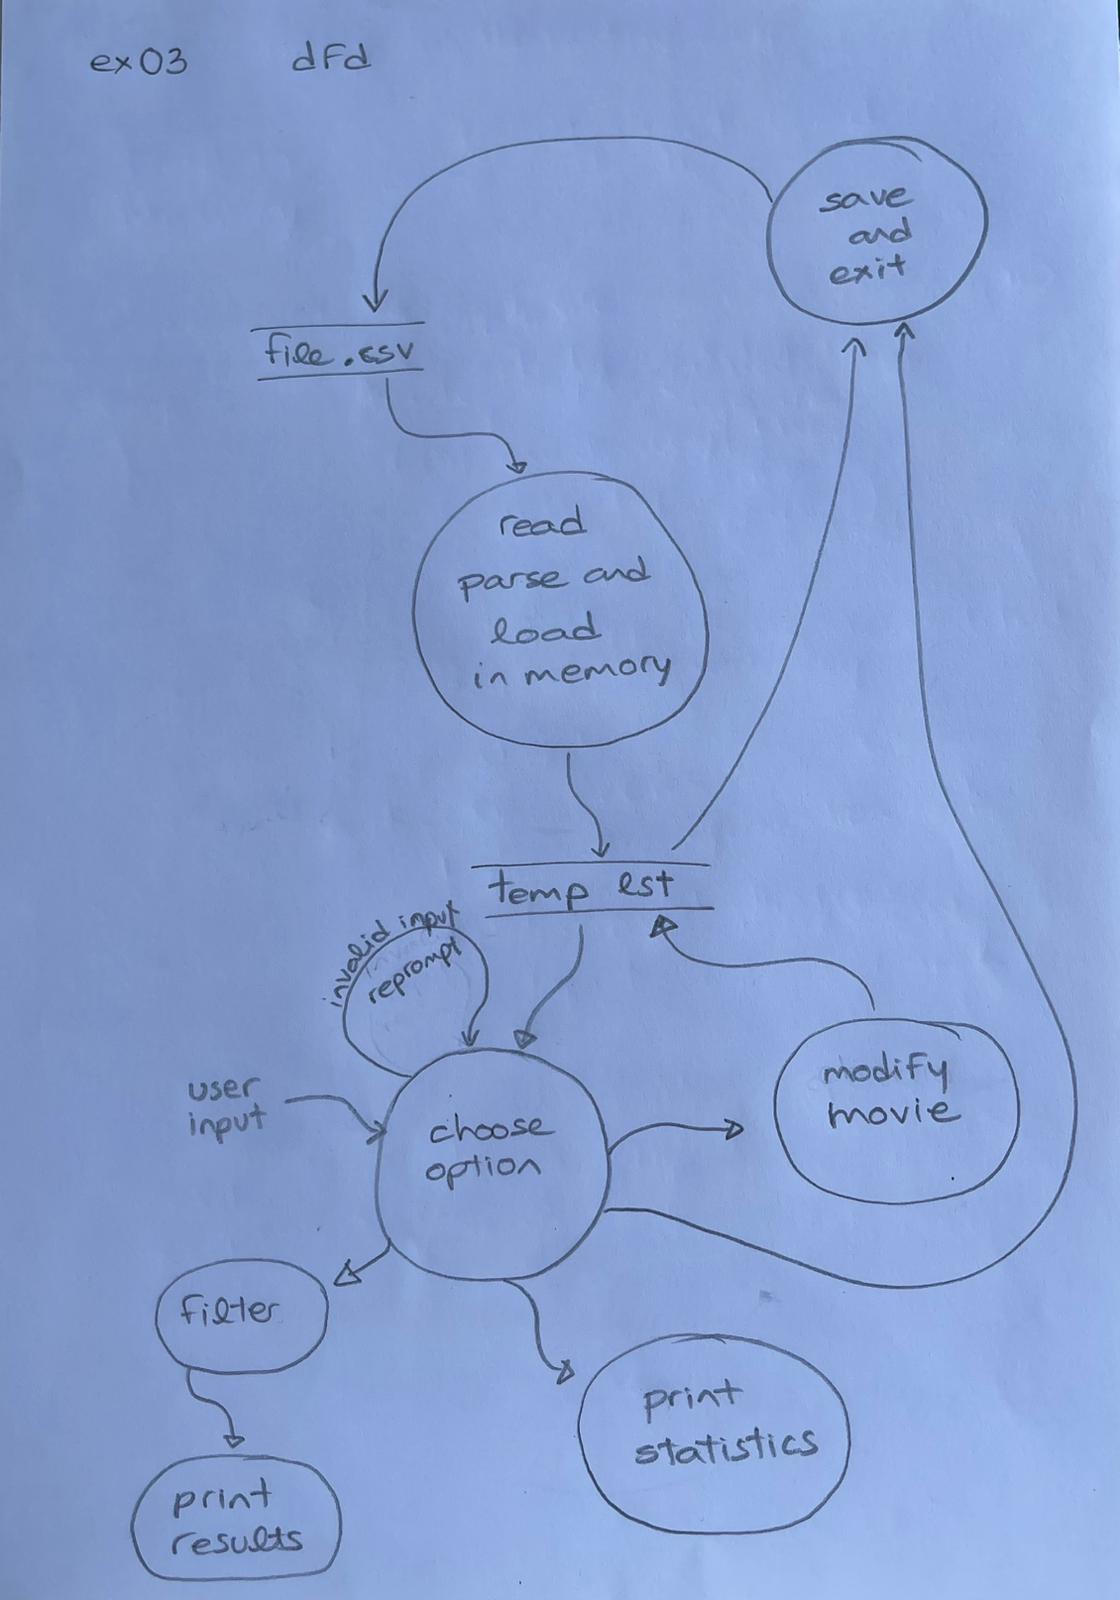 ex03 dFd
save
and
exit
file.csv
read
parse and
load
in memory
temp lst
invalid input
reprompt
user
input
choose
option
modify
movie
filter
print
statistics
print
results